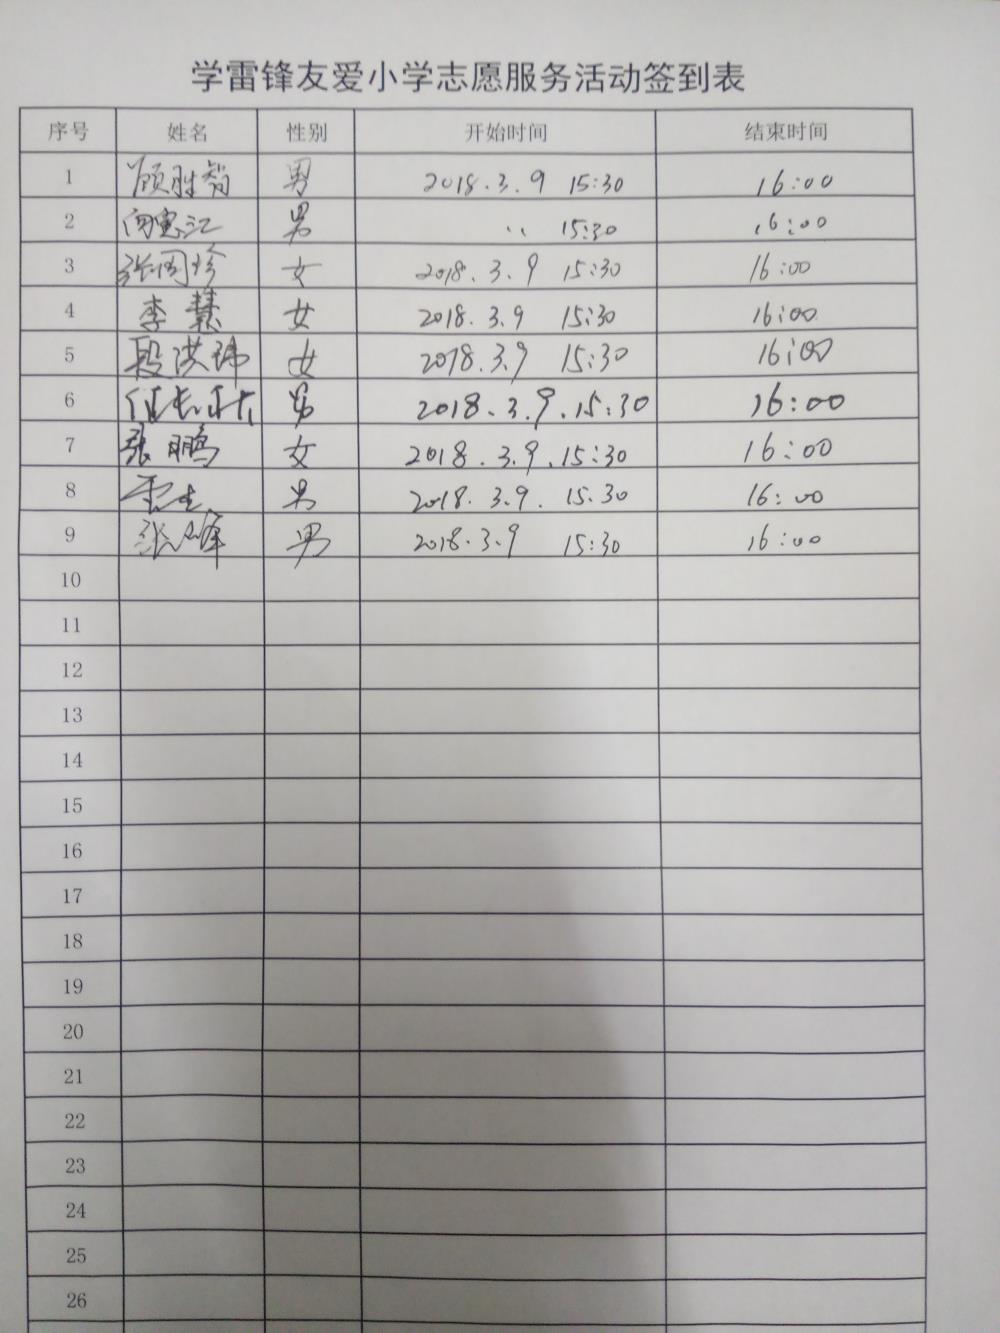 学雷锋友爱小学志愿服务活动签到表
序号 姓名 性别 开始时间 结束时间
1 顾胜智 男 2018.3.9 15:30 16:00
2 男 〃 15:30 16:00
3 女 2018.3.9 15:30 16:00
4 李慧 女 2018.3.9 15:30 16:00
5 段洪玮 女 2018.3.9 15:30 16:00
6 男 2018.3.9.15:30 16:00
7 张鹏 女 2018.3.9.15:30 16:00
8 男 2018.3.9. 15:30 16:00
9 张峰 男 2018.3.9 15:30 16:00
10
11
12
13
14
15
16
17
18
19
20
21
22
23
24
25
26